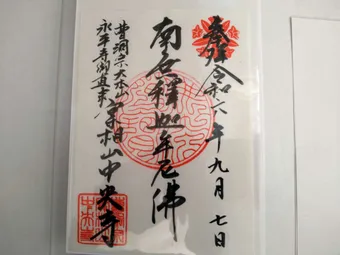 奉拝 令和六年九月七日
南無釋迦牟尼佛
曹洞宗大本山
永平寺御直末 山中央寺